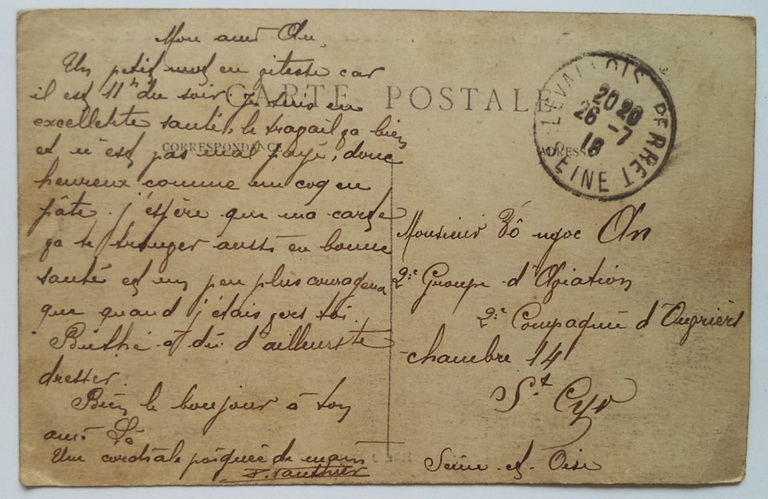 Mon ami An,
Un petit mot en vitesse car
il est 11h du soir, je suis en
excellente santé, le travail va bien
et n'est pas mal payé, donc
heureux comme un coq en
pâte. j'espère que ma carte
va te trouver aussi en bonne
santé et un peu plus courageux
que quand j'étais vers toi.
a dû d'ailleurs te
dresser.
Bien le bonjour à ton
ami Lê
Une cordiale poignée de main
CARTE POSTALE
CORRESPONDANCE
ADRESSE
LEVALLOIS PERRET
20 20
26 - 7
18
SEINE
Monsieur Võ ngoc An
2e Groupe d'Aviation
2e Compagnie d'Ouvriers
chambre 14
St Cyr
Seine et Oise